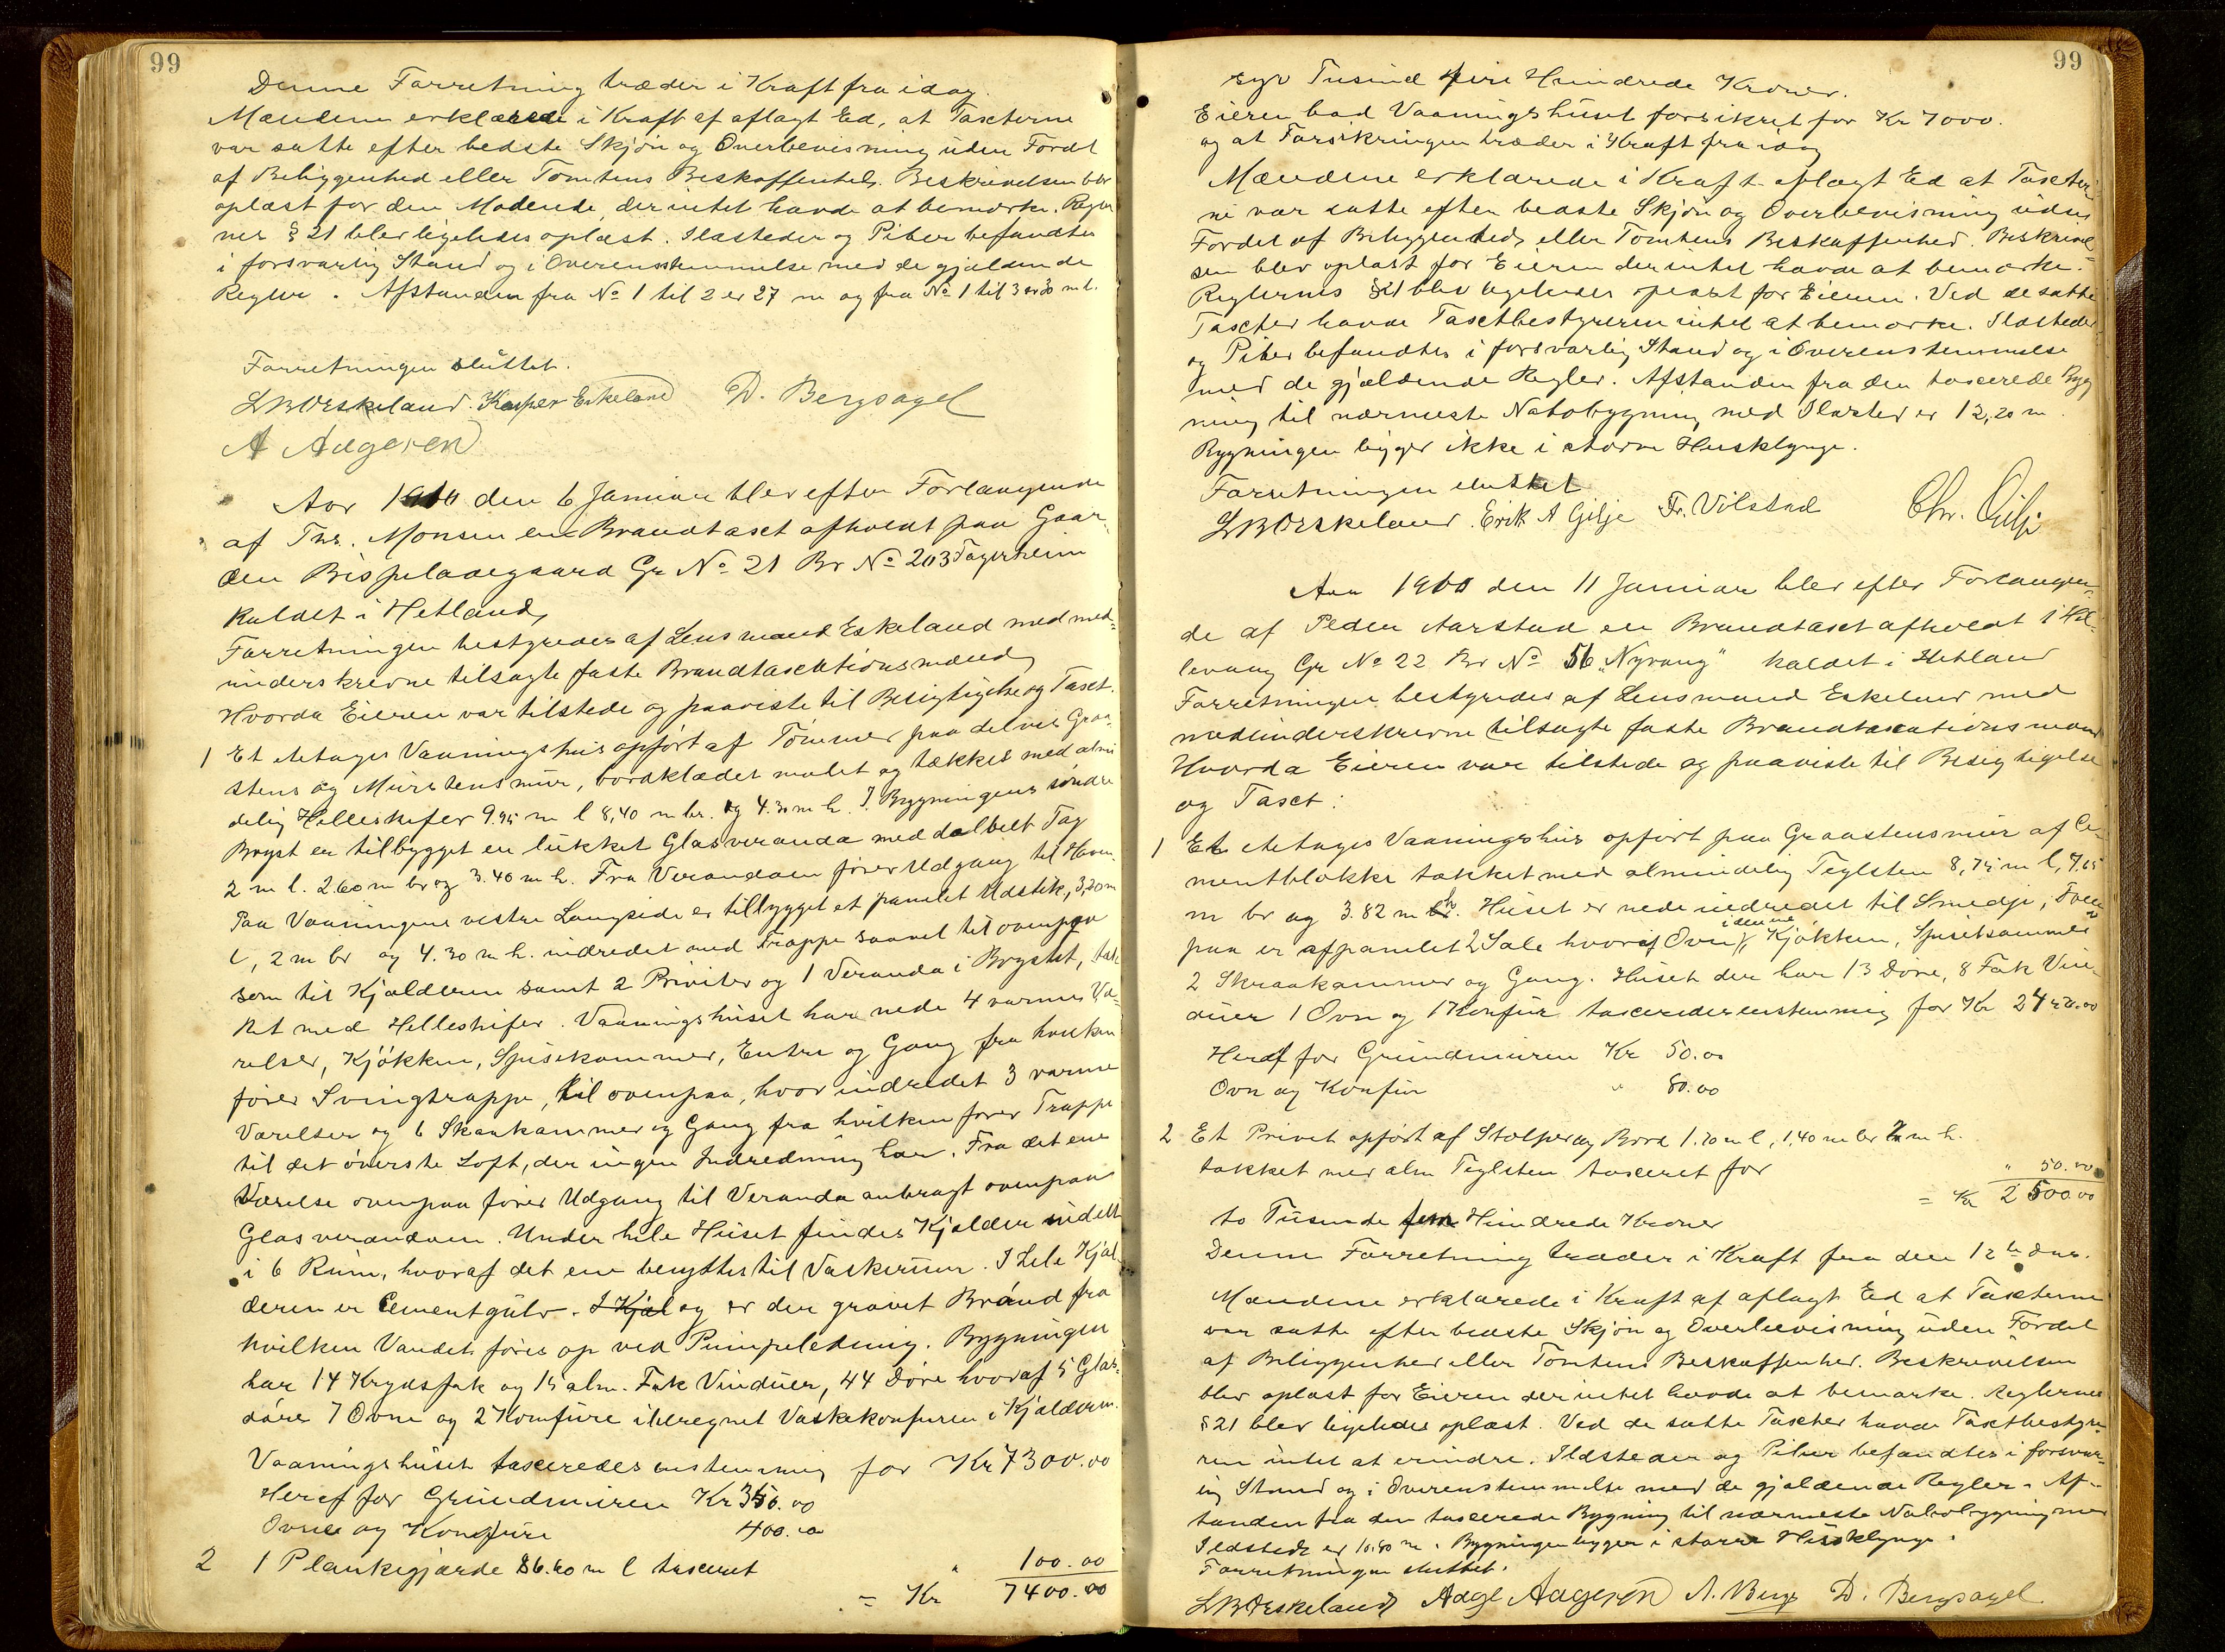 99
Denne Forretning træder i Kraft fra idag.
Mændene erklærede i Kraft af aflagt Ed, at Taxterne
var satte efter bedste Skjøn og Overbevisning uden Fordel
af Beliggenhed eller Tomtens Beskaffenhed. Beskrivelsen blev
oplæst for den Mødende, der intet havde at bemærke. Regler
nes § 21 blev ligeledes oplæst. Ildsteder og Piber befandtes
i forsvarlig Stand og i Overensstemmelse med de gjældende
Regler. Afstanden fra No 1 til 2 er 27 m og fra No 1 til 3 er 30 m l.
Forretningen sluttet.
LBOEskeland. Kasper Eskeland D. Bergsagel
A Adgeren
Aar 1910 den 6 Januar blev efter Forlangende
af Ths. Monsen en Brandtaxt afholdt paa Gaar-
den Bispeladegaard Gr No 21 Br No 203 Fagerheim
kaldet i Hetland,
Forretningen bestyredes af Lensmand Eskeland med med-
underskrevne tilsagte faste Brandtaxationsmænd,
Hvorda Eieren var tilstede og paaviste til Besigtigelse og Taxt.
1 Et Etages Vaaningshus opført af Tømmer paa delvis Graa-
stens og Murstensmur, bordklædet malet og tækket med almin
delig Helleskifer 9.95 m l 8,40 m br. og 4.30 m h. I Bygningens søndre
Bryst er tilbygget en lukket Glasveranda med dobbelt Tag
2 m l. 2.60 m br og 3.40 m h. Fra Verandaen fører Udgang til Haven.
Paa Vaaningens vestre Langside er tilbygget et panelet Udstik, 3,20 m
l, 2 m br og 4.30 m h. indredet med Trappe saavel til ovenpaa
som til Kjælderen samt 2 Priveter og 1 Veranda i Brystet, tæk
ket med Helleskifer. Vaaningshuset har nede 4 varme Væ-
relser, Kjøkken, Spisekammer, Entre og Gang fra hvilken
fører Svingtrappe, til ovenpaa, hvor indredet 3 varme
Værelser og 6 Skaakammer og Gang fra hvilken fører Trappe
til det øverste Loft, der ingen Indredning har. Fra det ene
Værelse ovenpaa fører Udgang til Veranda anbragt ovenpaa
Glasverandaen. Under hele Huset findes Kjælder inddelt
i 6 Rum, hvoraf det ene benyttes til Vaskerum. I hele Kjæl
deren er Cementgulv. I Kjæl og er der gravet Brønd fra
hvilken Vandet føres op ved Pumpeledning. Bygningen
har 14 Krydsfak og 15 alm. Fak Vinduer, 44 Døre hvoraf 5 Glas-
døre 7 Ovne og 2 Komfure iberegnet Vaskekomfuren i Kjælderen.
Vaaningshuset taxeredes enstemmig for Kr 7300.00
Heraf for Grundmuren Kr 350.00
Ovne og Komfure 400.00
2 1 Plankegjærde 86.60 m l taxeret " 100.00
= Kr 7400.00
99
syv Tusind fire Hundrede Kroner.
Eieren bad Vaaningshuset forsikret for Kr 7000.
og at Forsikringen træder i Kraft fra idag
Mændene erklærede i Kraft aflagt Ed at Taxter-
ne var satte efter bedste Skjøn og Overbevisning uden
Fordel af Beliggenhed, eller Tomtens Beskaffenhed. Beskrivel-
sen blev oplæst for Eieren der intet havde at bemærke.
Reglernes §21 blev ligeledes oplæst for Eieren. Ved de satte
Taxter havde Taxtbestyreren intet at bemærke. Ildsteder
og Piber befandtes i forsvarlig Stand og i Overenstemmelse
med de gjældende Regler. Afstanden fra den taxerede Byg
ning til nærmeste Nabobygning med Ildsted er 12,20 m.
Bygningen ligger ikke i større Husklynge.
Forretningen sluttet
LBOEskeland. Erik A Gilje Fr. Vølstad Chr. Gilje
Aar 1910 den 11 Januar blev efter Forlangen-
de af Peder Aarstad en Brandtaxt afholdt i Hil-
levaag Gr No 22 Br No 56 "Nyvang" kaldet i Hetland
Forretningen bestyredes af Lensmand Eskeland med
medunderskrevne tilsagte faste Brandtaxationsmænd
Hvorda Eieren var tilstede og paaviste til Besigtigelse
og Taxt:
1 Et Etages Vaaningshus opført paa Graastensmur af Ce-
mentblokke tækket med almindelig Teglsten 8,75 m l, 7,65
m br og 3.82 m h. Huset er nede indredet til Smedje, Oven
paa er afpanelet 2 Sale hvoraf Ovn i denne, Kjøkken, Spisekammer
2 Skraakammer og Gang. Huset der har 13 Døre, 8 Fak Vin-
duer 1 Ovn og 1 Komfur taxeredes enstemmig for Kr 2450.00
Heraf for Grundmuren Kr 50.00
Ovn og Komfur " 80.00
2 Et Privet opført af Stolper og Bord 1.20 m l, 1,40 m br 2 m h.
tækket med alm Teglsten taxeret for " 50.00
= Kr 2500.00
to Tusinde fem Hundrede Kroner
Denne Forretning træder i Kraft fra den 12te ds.
Mændene erklærede i Kraft af aflagt Ed at Taxterne
var satte efter bedste Skjøn og Overbevisning uden Fordel
af Beliggenhed eller Tomtens Beskaffenhed. Beskrivelsen
blev oplæst for Eieren der intet havde at bemærke. Reglernes
§21 blev ligeledes oplæst. Ved de satte Taxter havde Taxtbestyre-
ren intet at erindre. Ildsteder og Piber befandtes i forsvar-
lig Stand og i Overenstemmelse med de gjældende Regler. Af-
standen fra den taxerede Bygning til nærmeste Nabobygning med
Ildsted er 10.80 m. Bygningen ligger i større Husklynge.
Forretningen sluttet.
LBOEskeland Aage Aageson A. Berg D. Bergsagel